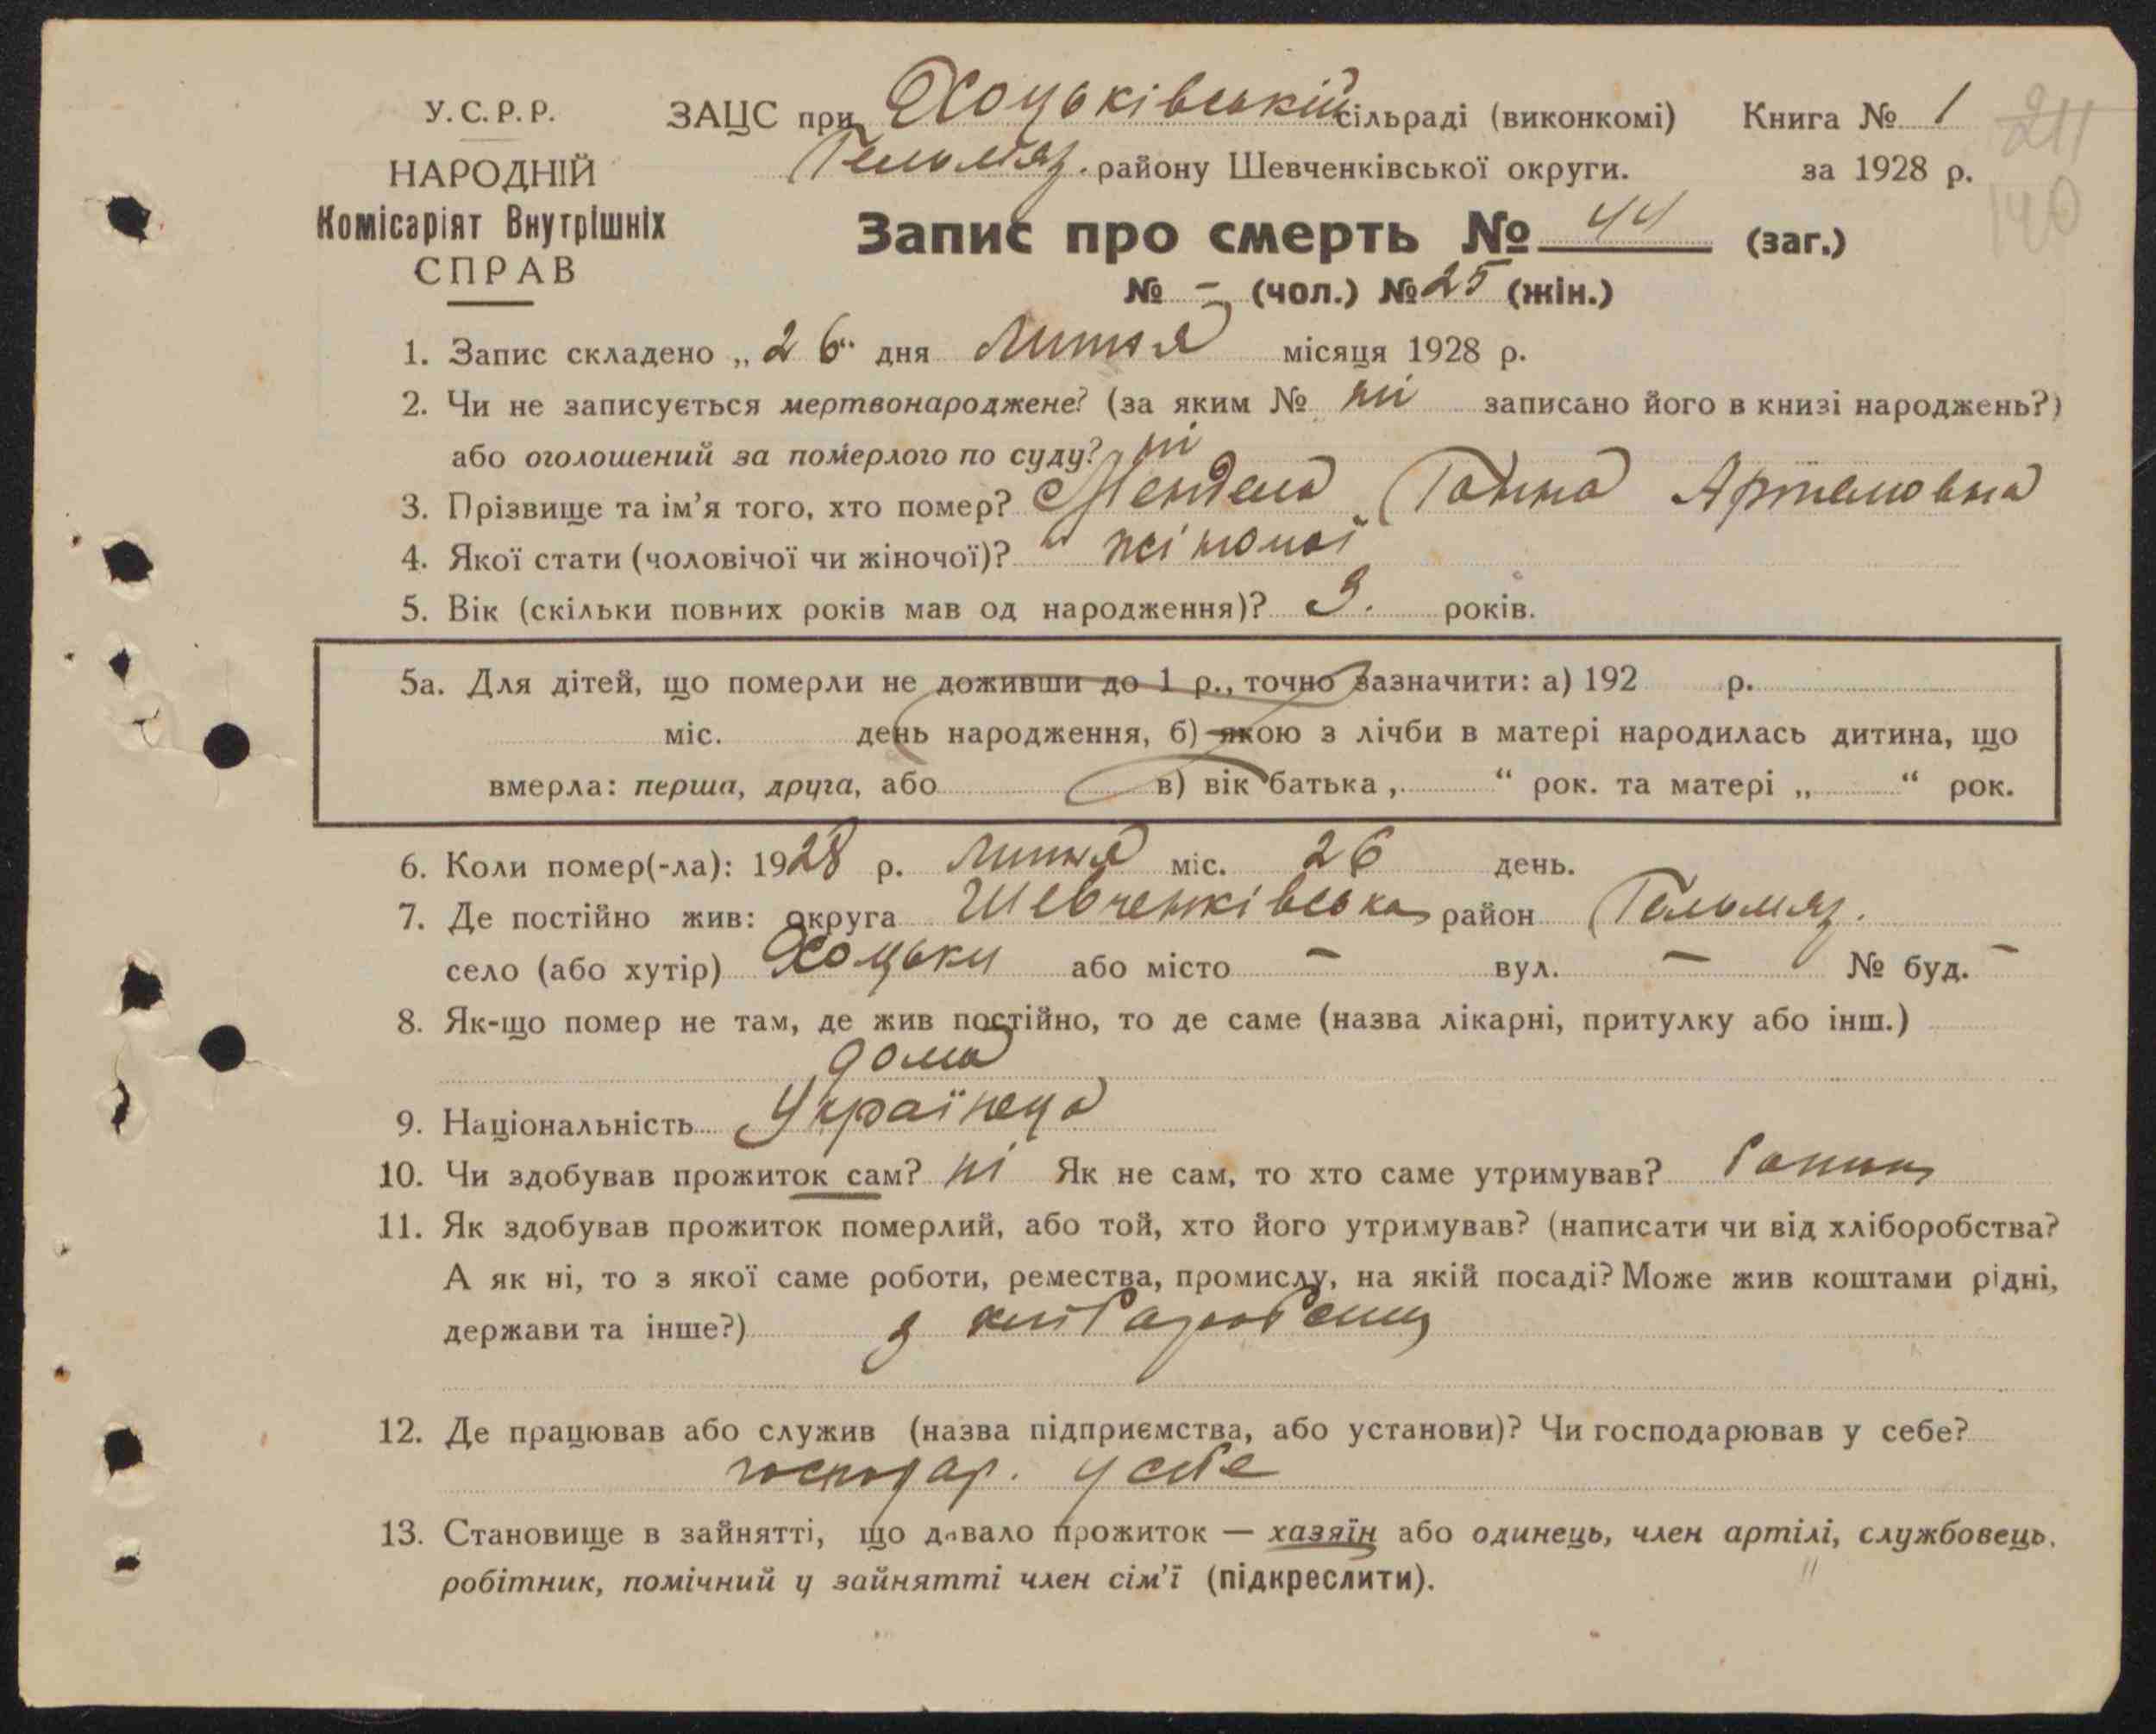 У.С.Р.Р. ЗАЦС при Хоцьківській сільраді (виконкомі) Книга № 1
211
НАРОДНІЙ Гельмяз. району Шевченківської округи. за 1928 р.
140
Комісаріят Внутрішніх
СПРАВ
Запис про смерть № 44 (заг.)
№ - (чол.) № 25 (жін.)
1. Запис складено „26“ дня Липня місяця 1928 р.
2. Чи не записується мертвонароджене? (за яким № ні записано його в книзі народжень?)
або оголошений за померлого по суду? ні
3. Прізвище та ім’я того, хто помер? Ганна Артемовна
4. Якої стати (чоловічої чи жіночої)? жіночої
5. Вік (скільки повних років мав од народження)? 3. років.
5а. Для дітей, що померли не доживши до 1 р., точно зазначити: а) 192 р.
міс. день народження, б) якою з лічби в матері народилась дитина, що
вмерла: перша, друга, або в) вік батька „ “ рок. та матері „ “ рок.
6. Коли помер(-ла): 1928 р. Липня міс. 26 день.
7. Де постійно жив: округа Шевченківська район Гельмяз.
село (або хутір) Хоцьки або місто — вул. — № буд. —
8. Як-що помер не там, де жив постійно, то де саме (назва лікарні, притулку або інш.)
дома
9. Національність Українца
10. Чи здобував прожиток сам? ні Як не сам, то хто саме утримував?
11. Як здобував прожиток померлий, або той, хто його утримував? (написати чи від хліборобства?
А як ні, то з якої саме роботи, ремества, промислу, на якій посаді? Може жив коштами рідні,
держави та інше?) з
12. Де працював або служив (назва підприємства, або установи)? Чи господарював у себе?
господар. у себе
13. Становище в зайнятті, що давало прожиток — хазяїн або одинець, член артілі, службовець,
робітник, помічний у зайнятті член сім’ї (підкреслити).